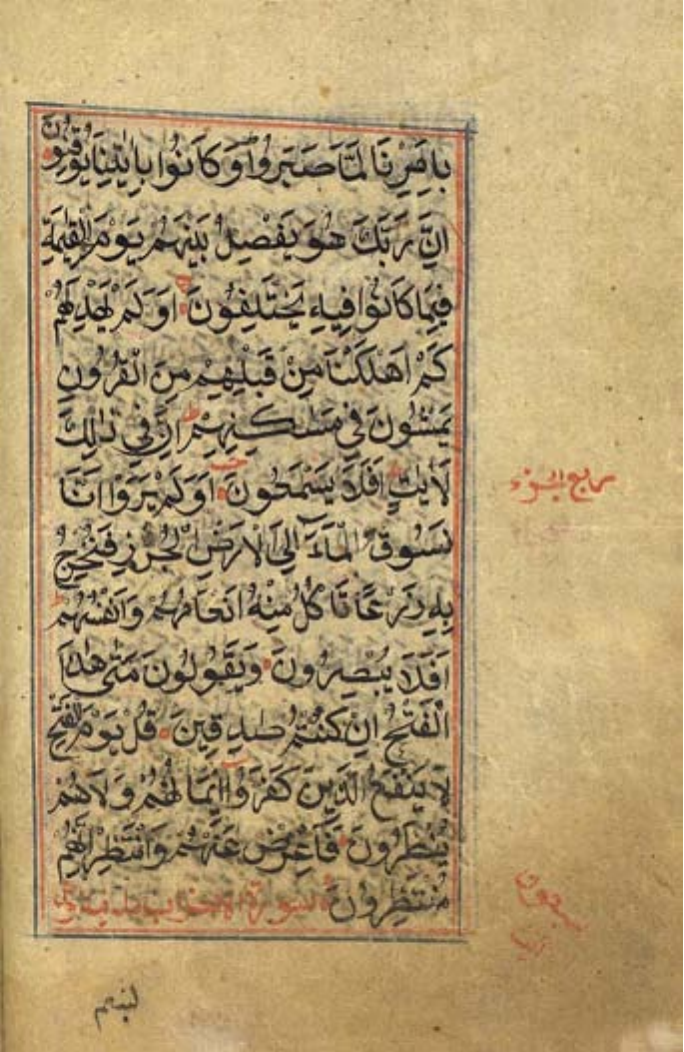 بِاَمْرِنَا لَمَّا صَبَرُوْا وَكَانُوْا بِاٰيٰتِنَا يُوْقِنُوْنَ
اِنَّ رَبَّكَ هُوَ يَفْصِلُ بَيْنَهُمْ يَوْمَ الْقِيٰمَةِ
فِيْمَا كَانُوْا فِيْهِ يَخْتَلِفُوْنَ اَوَلَمْ يَهْدِ لَهُمْ
كَمْ اَهْلَكْنَا مِنْ قَبْلِهِمْ مِنَ الْقُرُوْنِ
يَمْشُوْنَ فِيْ مَسٰكِنِهِمْ اِنَّ فِيْ ذٰلِكَ
لَاٰيٰتٍ اَفَلَا يَسْمَعُوْنَ اَوَلَمْ يَرَوْا اَنَّا
نَسُوْقُ الْمَآءَ اِلَى الْاَرْضِ الْجُرُزِ فَنُخْرِجُ
بِهٖ زَرْعًا تَاْكُلُ مِنْهُ اَنْعَامُهُمْ وَاَنْفُسُهُمْ
اَفَلَا يُبْصِرُوْنَ وَيَقُوْلُوْنَ مَتٰى هٰذَا
الْفَتْحُ اِنْ كُنْتُمْ صٰدِقِيْنَ قُلْ يَوْمَ الْفَتْحِ
لَا يَنْفَعُ الَّذِيْنَ كَفَرُوْا اِيْمَانُهُمْ وَلَا هُمْ
يُنْظَرُوْنَ فَاَعْرِضْ عَنْهُمْ وَانْتَظِرْ اِنَّهُمْ
مُنْتَظِرُوْنَ سورة الاحزاب
ربع الجزء